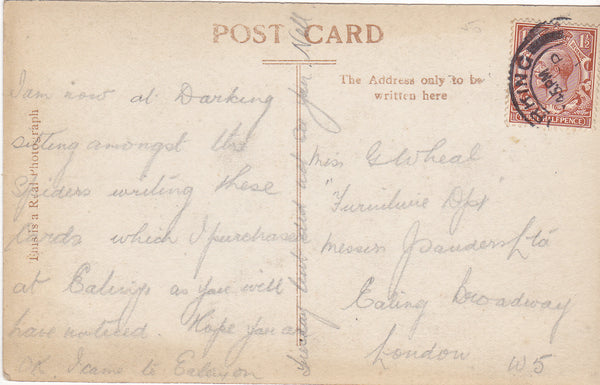 POST CARD
The Address only to be
written here
This is a Real Photograph
I am now at Darking
sitting amongst the
Spiders writing these
Cards which I purchased
at Ealings as you will
have noticed. Hope you are
OK. I came to Ealing on
Sunday but did not see you. Nell
Miss G Wheal
"Furniture Dpt
Messrs Sanders Ltd
Ealing Broadway
London W5
1½ 1½
HALFPENCE
KING